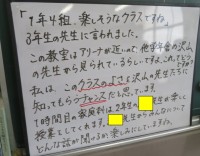 「1年4組、楽しそうなクラスですね。」
3年生の先生に言われました。
この教室はアリーナが近いので、他学年の沢山
の先生から見られているらしいですよ。これってどう
私は、このクラスのよさを沢山の先生たちに
知ってもらうチャンスだと思ってます。
1時間目の家庭科は、2年生の 先生が楽しく
授業をしてくれます。 先生からみんなについて
どんな話が聞けるか楽しみにしていますね。